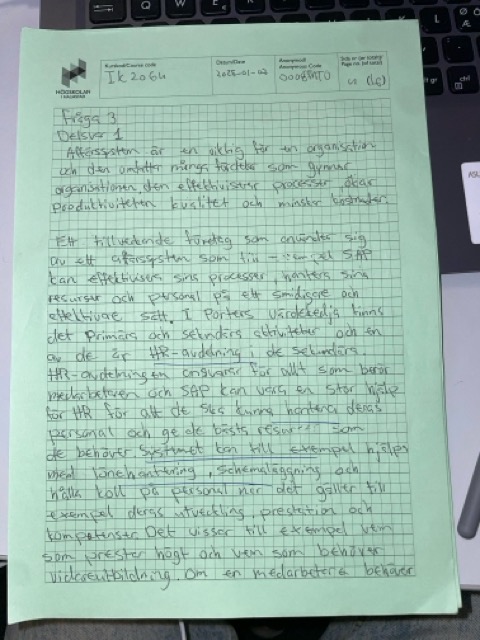 HÖGSKOLAN
Kurskod/Course code
IK206U
Datum/Date
Anonymkod
Anonymous Code
Fråga 3
Delsvar 1
Affärssystem är en viktig för en organisation
och den omfattar många fördelar som gynnar
organisationen den effektiviserar processer ökar
Produktiviteten kvalitet och minskar kostnader.
Ett tillverkande företag som använder sig
av ett affärssystem som till exempel SAP
kan effektivisera sina processer, hantera sina
resurser och personal på ett smidigare och
effektivare sätt. I Porters värdekedja finns
det Primära och sekundära aktiviteter och en
av de är HR-avdelning, de sekundära
HR-avdelningen ansvarar för allt som berör
medarbetaren och SAP kan vara en stor hjälp
för HR för att de ska kunna hantera deras
personal och ge de bästa resurser som
de behöver Systemet kan till exempel hjälpa
med lönehantering, schemaläggning och
hålla koll på personal när det gäller till
exempel deras utveckling, prestation och
kompetenser Det vissar till exempel vem
som prestar högt och vem som behöver
vidareutbildning. Om en medarbetare behöver